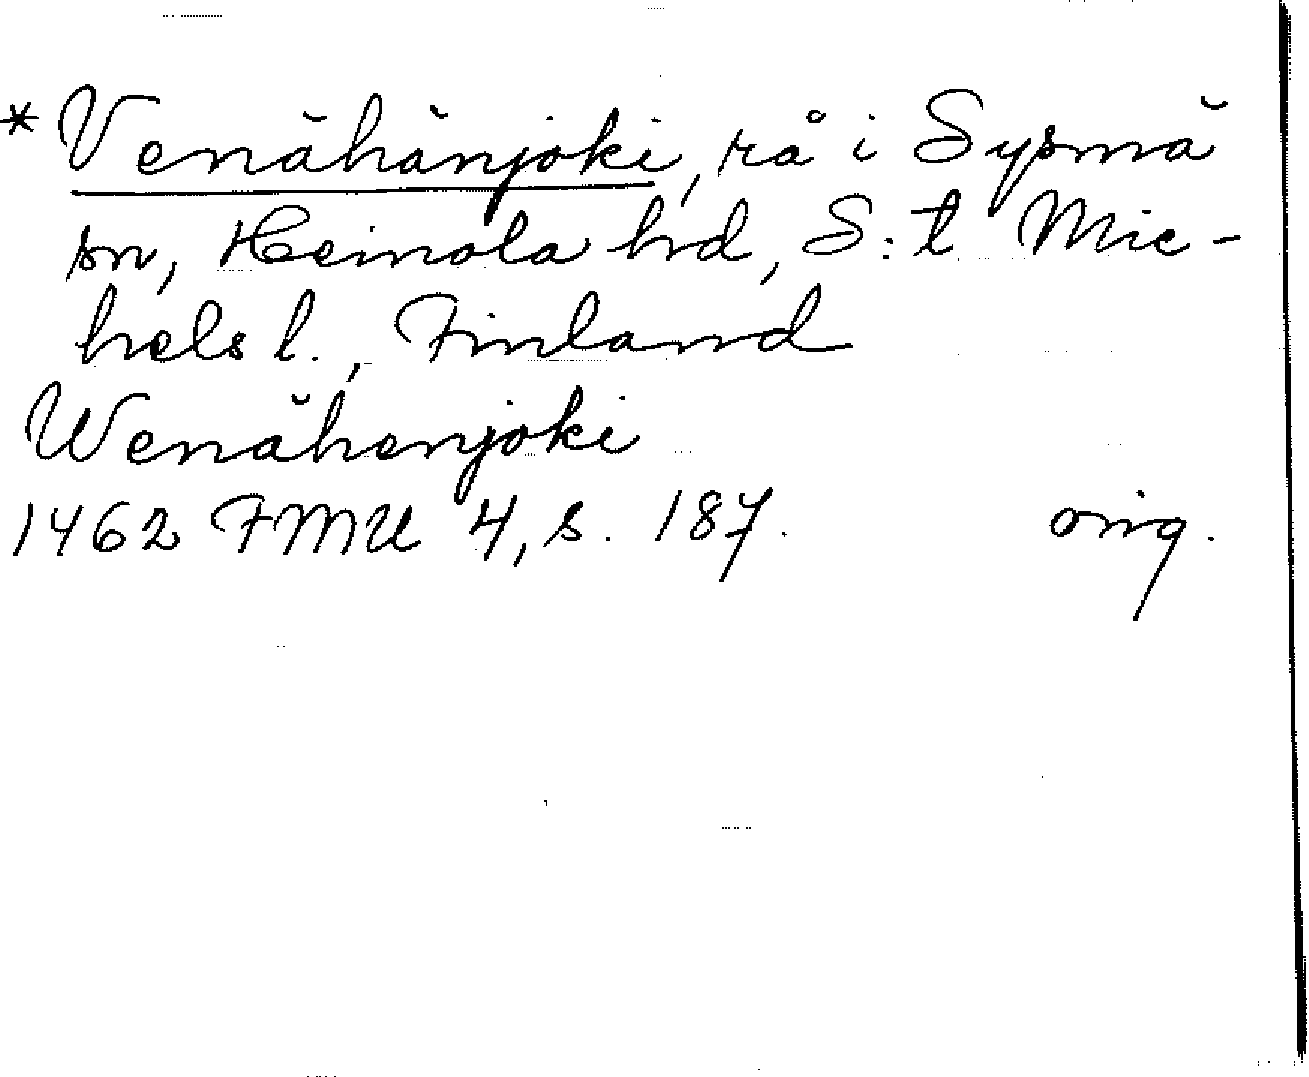 *Venähänjoki, rå i Sysmä
sn, Heinola hd, S:t Mic-
hels l., Finland
Wenähenjoki
1462 FMU 4, s. 187. orig.